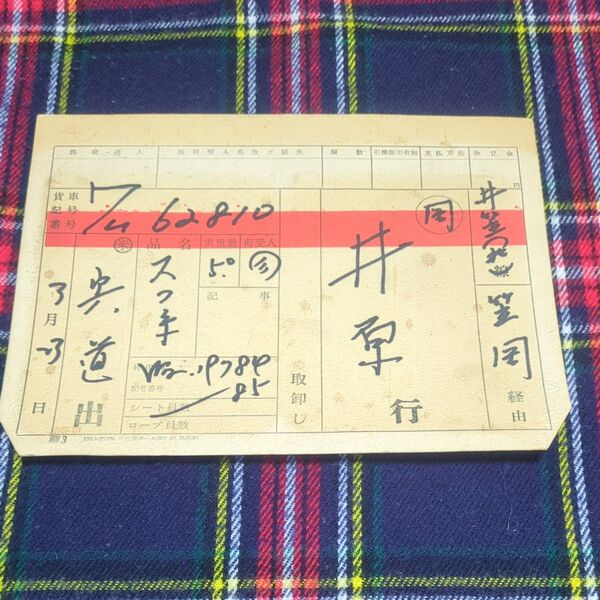 真荷送人 真荷受人名及び宿所 個数 引換証の有無 支払方法 取立金
円
貨車
記号
番号
ワム 62810
品名 実重量 荷受人
スフ
5.0
記事
記号番号
19784
85
シート員数
ロープ員数
3月
日
宍道
出
取卸し
岡
井原
行
井笠
笠岡
経由